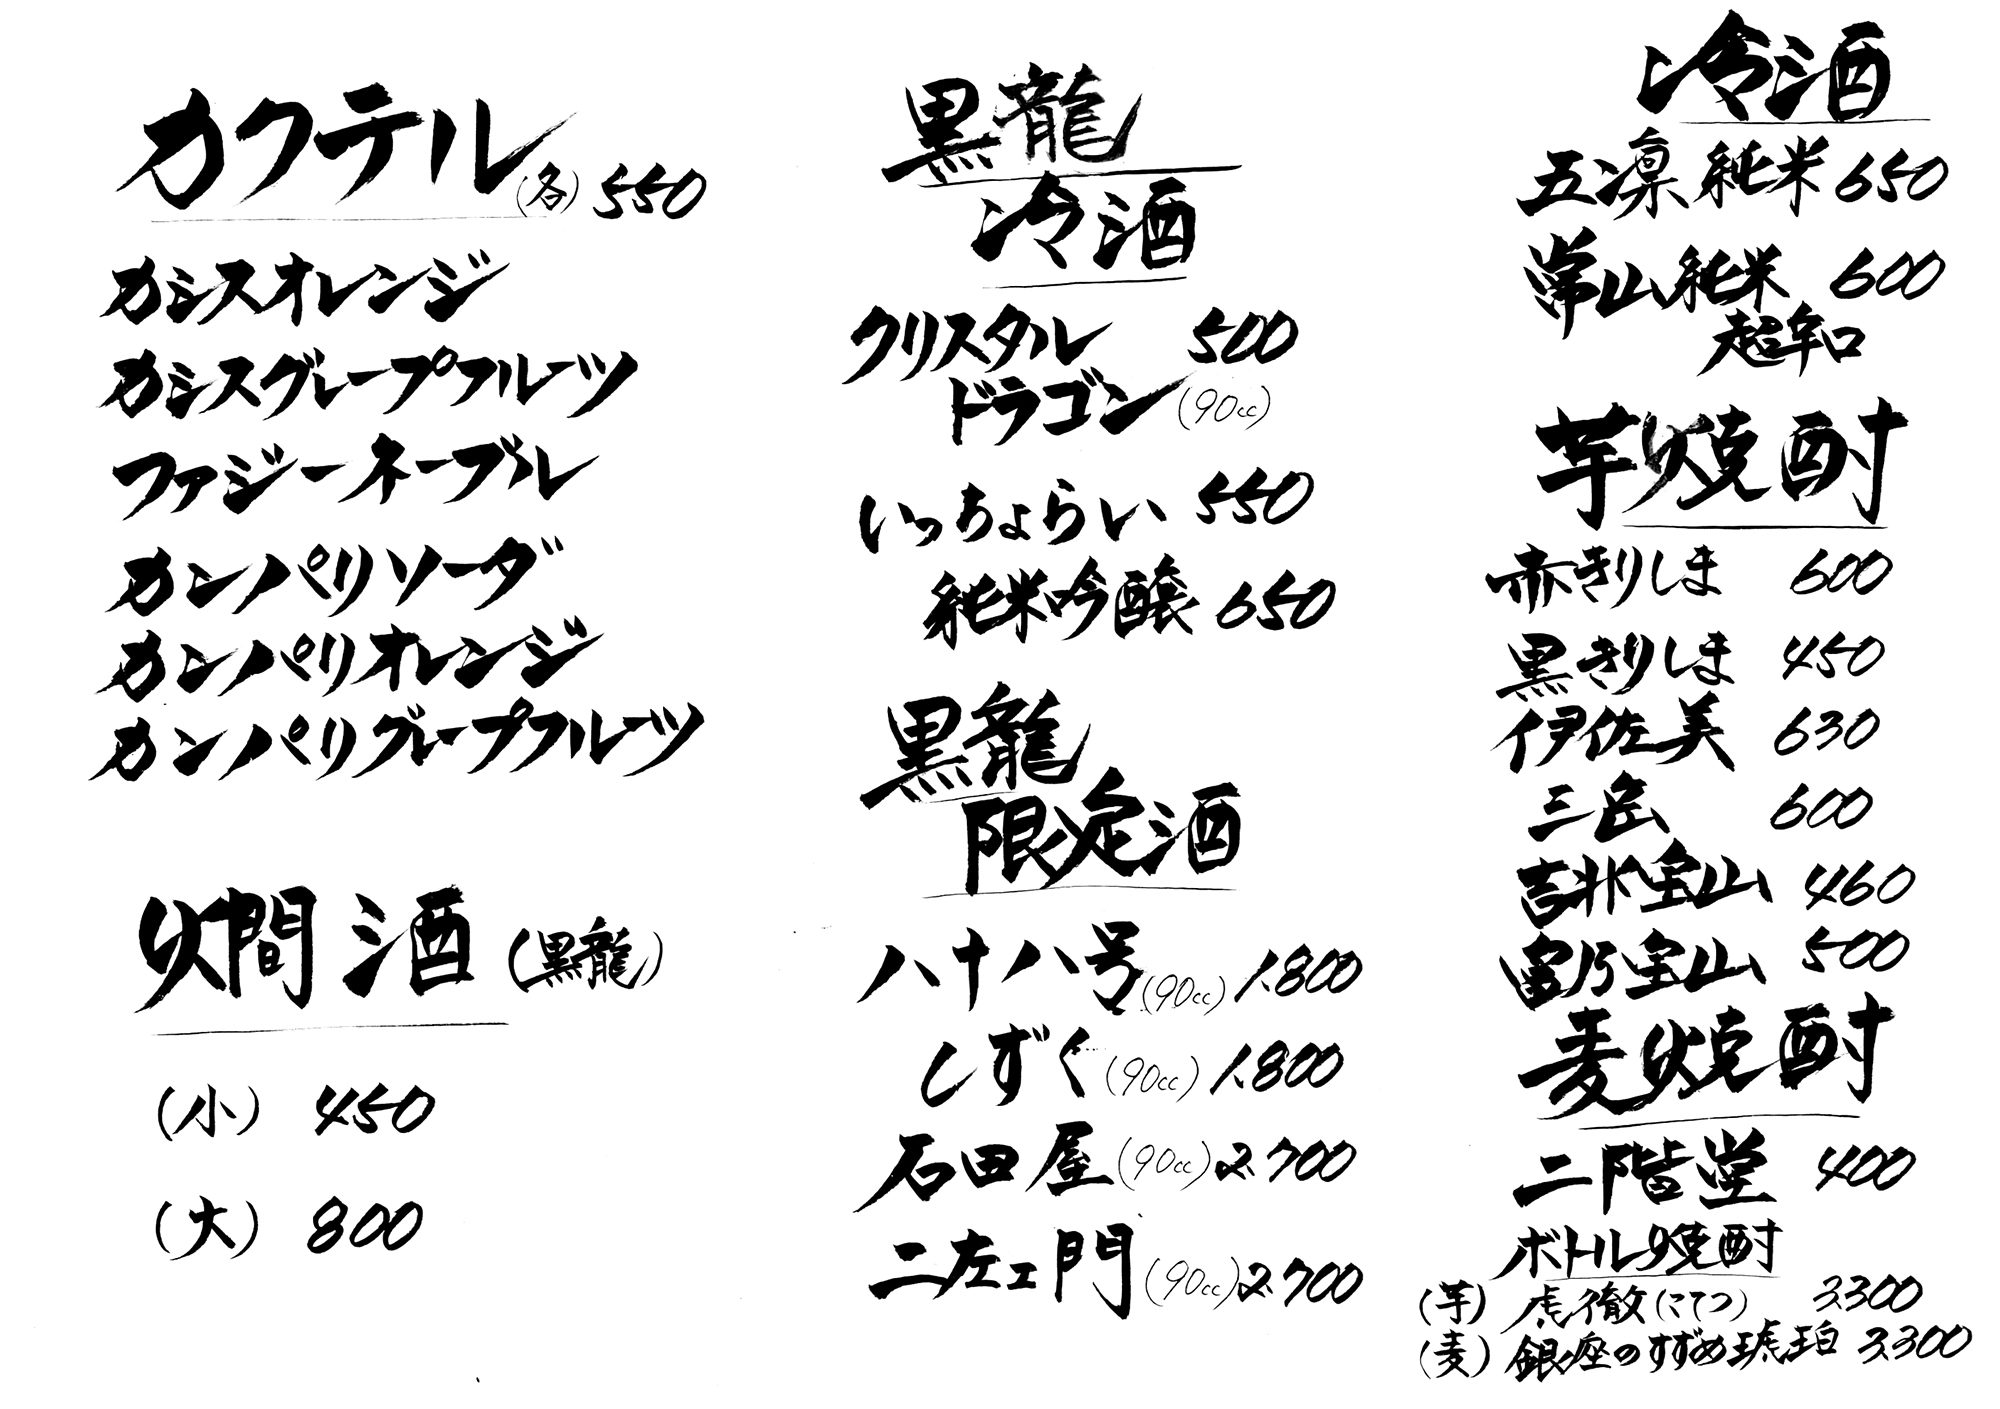 冷酒
五凛 純米 650
常山 純米 600
超辛口
芋焼酎
赤きりしま 600
黒きりしま 450
伊佐美 630
三岳 600
吉兆宝山 460
富乃宝山 500
麦焼酎
二階堂 400
ボトル焼酎
(芋) 虎徹(こてつ) 3.300
(麦) 銀座のすずめ琥珀 3.300
黒龍
冷酒
クリスタル 500
ドラゴン (90cc)
いっちょらい 550
純米吟醸 650
黒龍
限定酒
八十八号 (90cc) 1.800
しずく (90cc) 1.800
石田屋 (90cc) 2.700
二左エ門 (90cc) 2.700
カクテル (各) 550
カシスオレンジ
カシスグレープフルーツ
ファジーネーブル
カンパリソーダ
カンパリオレンジ
カンパリグレープフルーツ
燗酒 (黒龍)
(小) 450
(大) 800